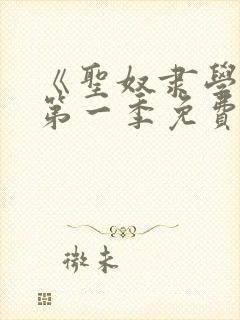 《聖奴肅學
第一季免費
微末